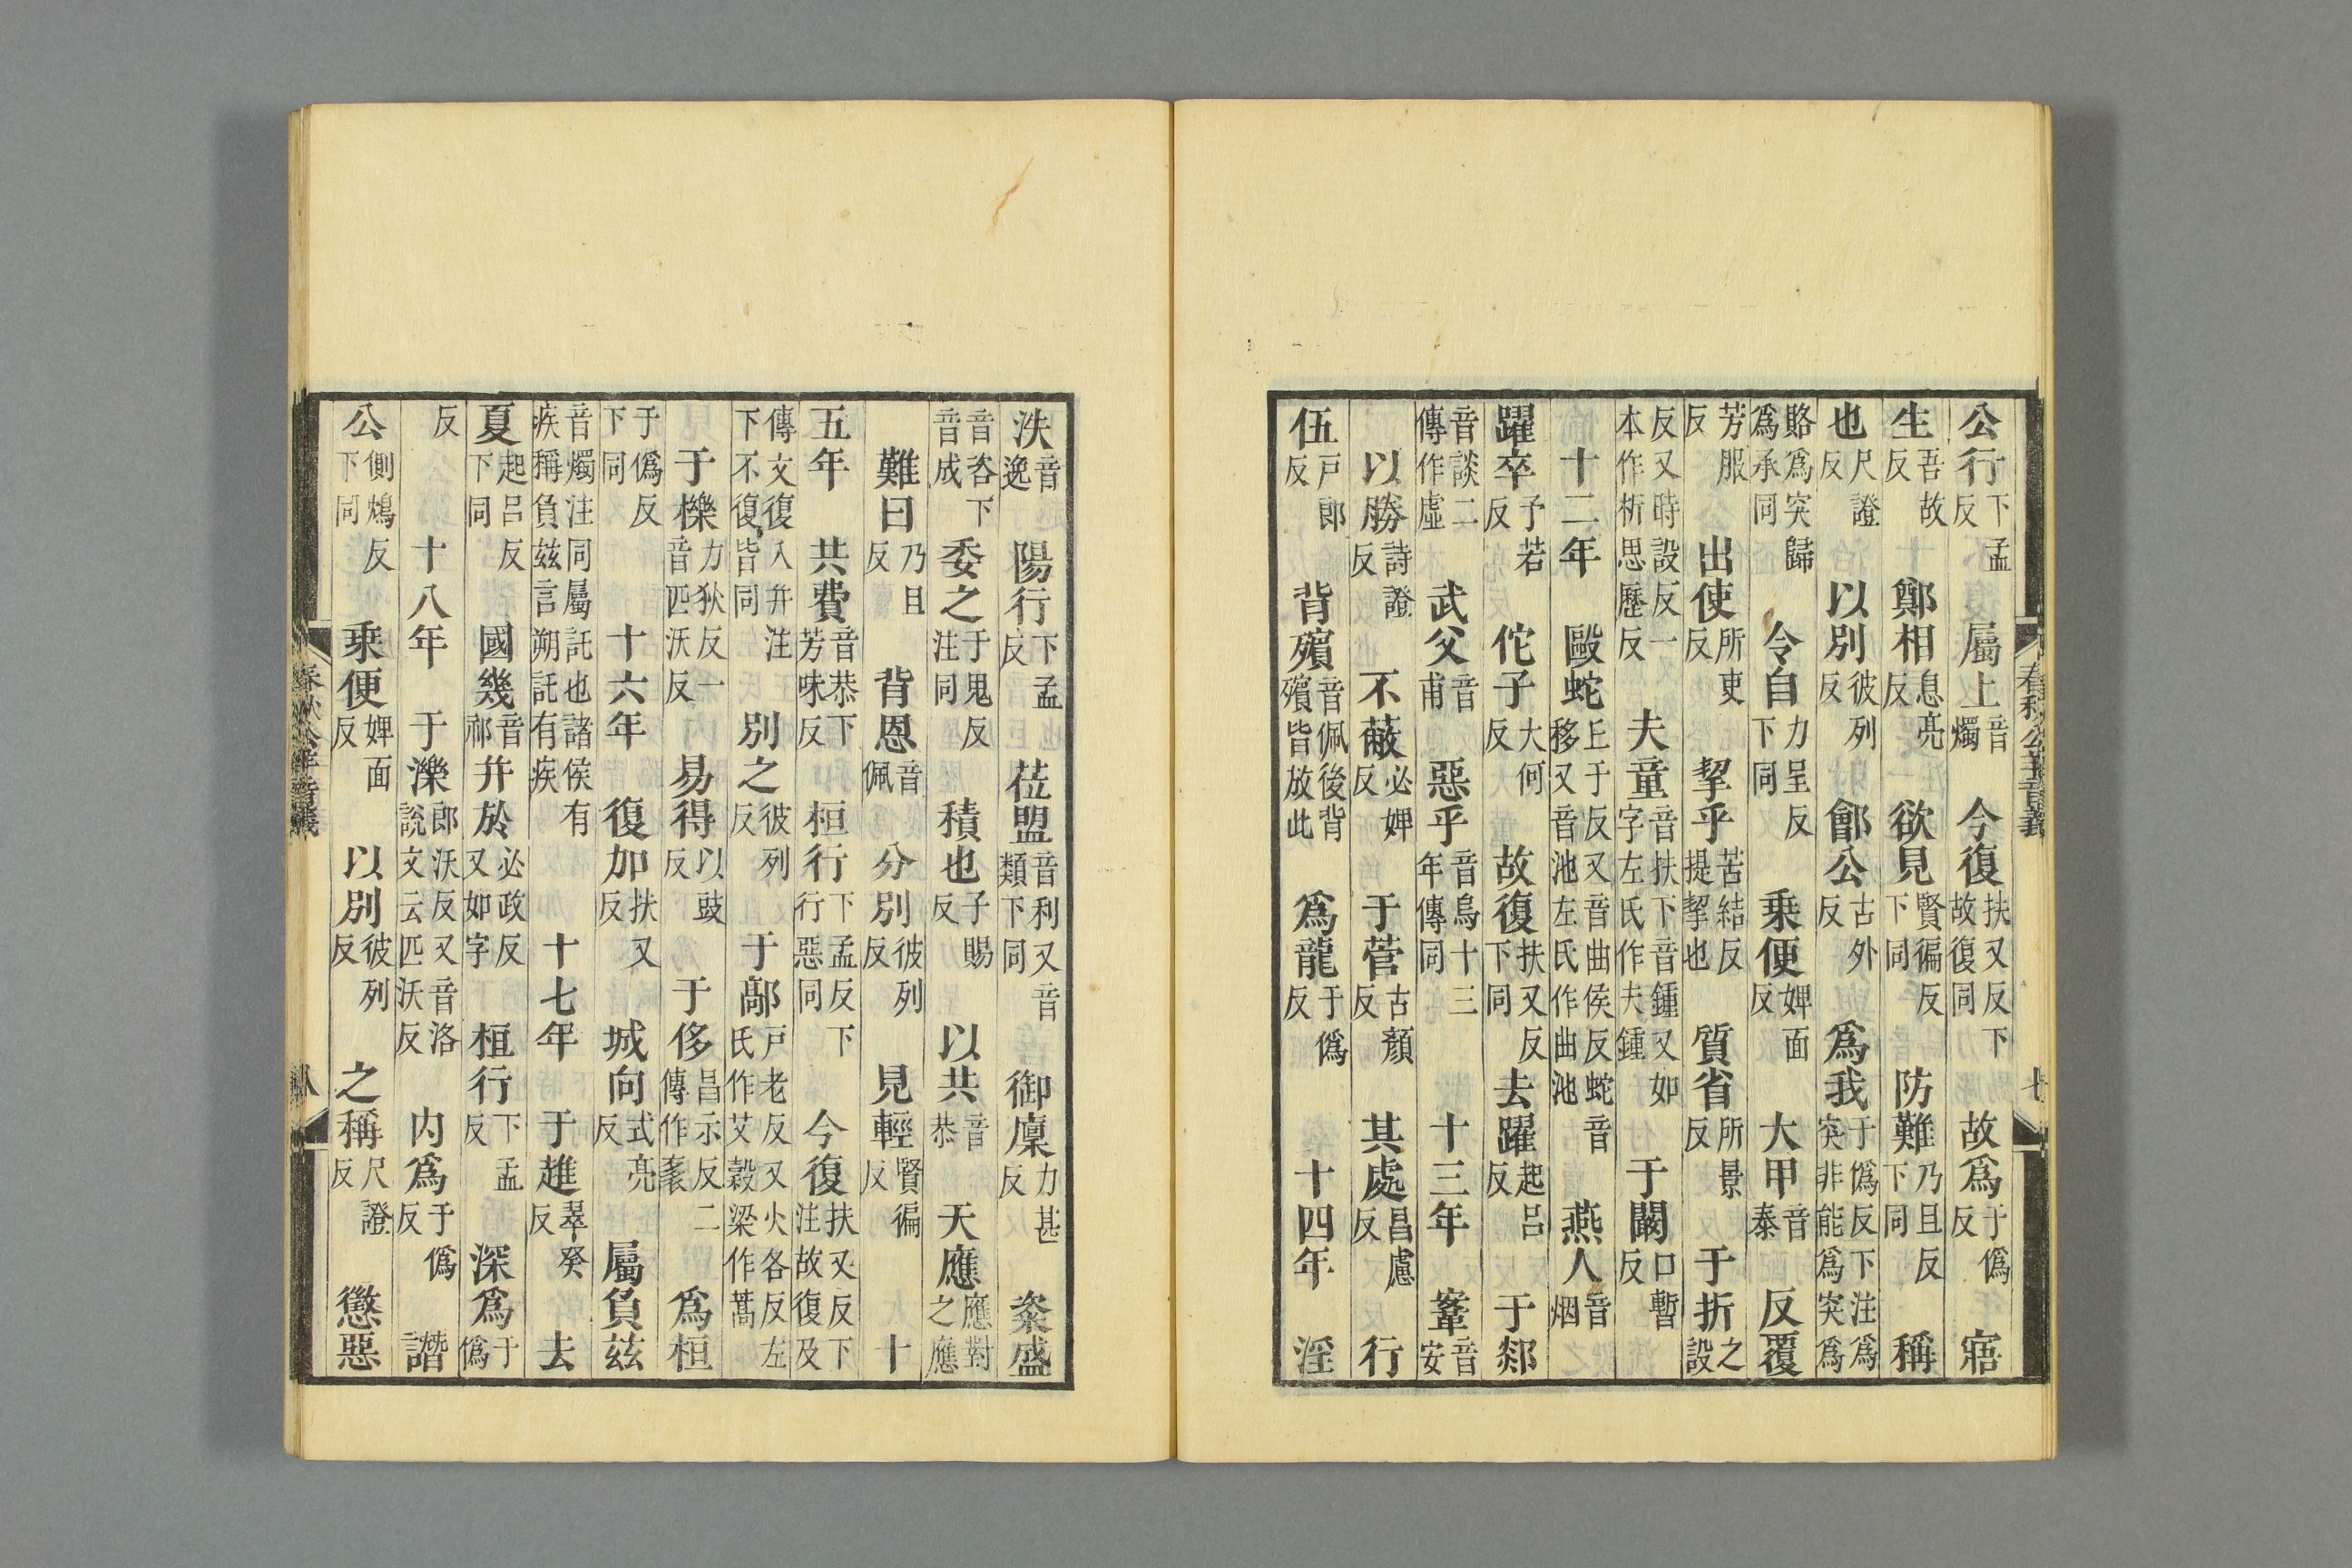 公行下孟反屬上音燭今復扶又反下故復同故爲于僞反寤
生吾故反鄭相息亮反欲見賢徧反下同防難乃旦反下同稱
也尺證反以別彼列反鄶公古外反爲我于僞反下注爲突非能爲突爲
賂爲突歸爲承同令自力呈反下同乗便婢面反大甲音泰反覆
芳服反出使所吏反挈乎苦結反提挈也質省所景反于折之設
反又時設反一本作析思歷反夫童音扶下音鍾又如字左氏作夫鍾于闞口暫反
十二年毆蛇丘于反又音曲侯反蛇音移又音池左氏作曲池燕人音烟
躍卒予若反佗子大何反故復扶又反下同去躍起呂反于郯
音談二傳作虛武父音甫惡乎音烏十三年傳同十三年鞌音安
以勝詩證反不蔽必婢反于菅古顏反其處昌慮反行
伍戸郎反背殯音佩後背殯皆放此爲龍于僞反十四年淫
春秋公羊音義
七
泆音逸陽行下孟反莅盟音利又音類下同御廩力甚反粢盛
音咨下音成委之于鬼反注同積也子賜反以共音恭天應應對之應
難曰乃旦反背恩音佩分別彼列反見輕賢徧反十
五年共費音恭下芳味反桓行下孟反下行惡同今復扶又反下注故復及
傳文復入并注下不復皆同別之彼列反于鄗戸老反又火各反左氏作艾穀梁作蒿
于櫟力狄反一音匹沃反易得以豉反于侈昌示反二傳作袲爲桓
于僞反下同十六年復加扶又反城向式亮反屬負茲
音燭注同屬託也諸侯有疾稱負茲言朔託有疾十七年于趡翠癸反去
夏起呂反下同國幾音祁并於必政反又如字桓行下孟反深爲于僞
反十八年于濼郎沃反又音洛說文云匹沃反内爲于僞反譖
公側鴆反下同乗便婢面反以別彼列反之稱尺證反懲惡
春秋公羊音義
八